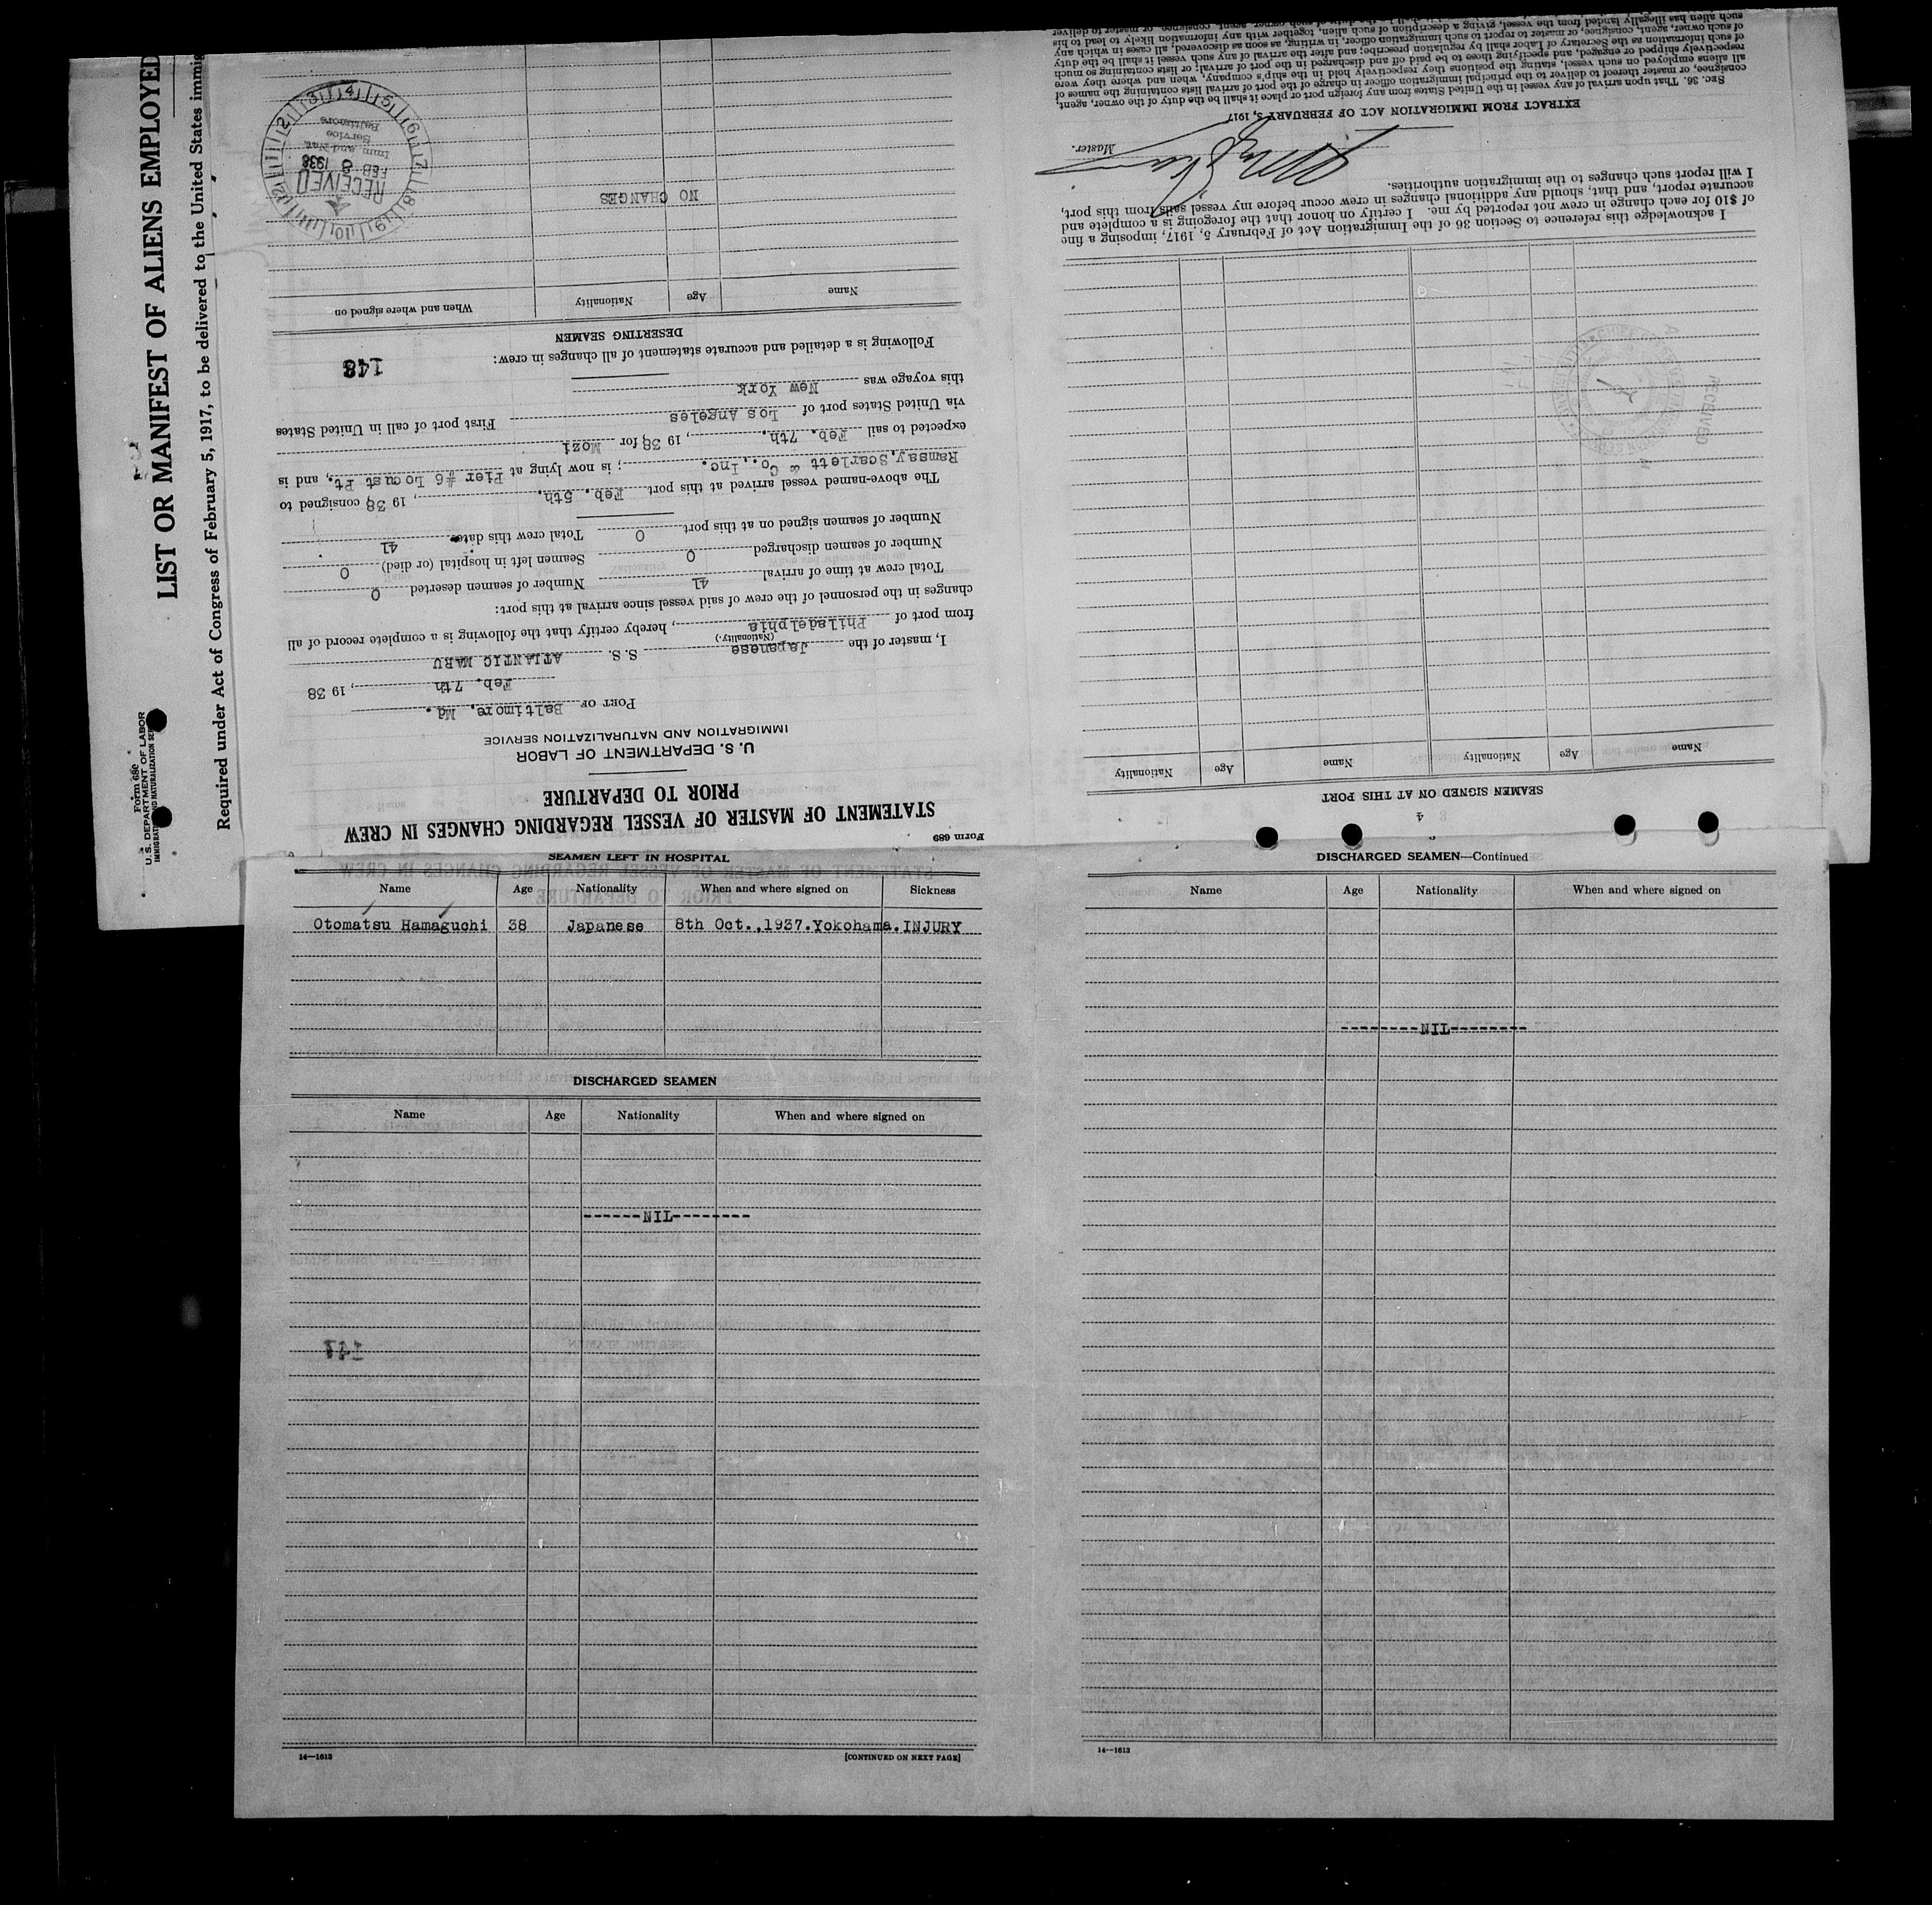 Form 680
U. S. DEPARTMENT OF LABOR
LIST OR MANIFEST OF ALIENS EMPLOYED
Required under Act of Congress of February 5, 1917, to be delivered to the United States immig
Form 689
STATEMENT OF MASTER OF VESSEL REGARDING CHANGES IN CREW
PRIOR TO DEPARTURE
U. S. DEPARTMENT OF LABOR
IMMIGRATION AND NATURALIZATION SERVICE
PORT OF Baltimore, Md.
Feb. 7th, 19 38
I, master of the Japanese S. S. ATLANTIC MARU
(Nationality.)
from port of Philadelphia, hereby certify that the following is a complete record of all
changes in the personnel of the crew of said vessel since arrival at this port:
Total crew at time of arrival 41 Number of seamen deserted 0
Number of seamen discharged 0 Seamen left in hospital (or died) 0
Number of seamen signed on at this port 0 Total crew this date 41
The above-named vessel arrived at this port Feb. 5th, 19 38 consigned to
Ramsay, Scarlett & Co., Inc.; is now lying at Pier #6 Locust Pt., and is
expected to sail Feb. 7th., 19 38, for Mozi
via United States port of Los Angeles First port of call in United States
this voyage was New York
Following is a detailed and accurate statement of all changes in crew:
148
DESERTING SEAMEN
Name Age Nationality When and where signed on
NO CHANGES
RECEIVED
FEB 8 1938
Imm. and Nat.
Service
Baltimore
SEAMEN SIGNED ON AT THIS PORT
Name Age Nationality Name Age Nationality
I acknowledge this reference to Section 36 of the Immigration Act of February 5, 1917, imposing a fine
of $10 for each change in crew not reported by me. I certify on honor that the foregoing is a complete and
accurate report, and that, should any additional changes in crew occur before my vessel sails from this port,
I will report such changes to the immigration authorities.
Master.
EXTRACT FROM IMMIGRATION ACT OF FEBRUARY 5, 1917
SEC. 36. That upon arrival of any vessel in the United States from any foreign port or place it shall be the duty of the owner, agent,
consignee, or master thereof to deliver to the principal immigration officer in charge of the port of arrival lists containing the names of
all aliens employed on such vessel, stating the positions they respectively hold in the ship's company, when and where they were
respectively shipped or engaged, and specifying those to be paid off and discharged in the port of arrival; or lists containing so much
of such information as the Secretary of Labor shall by regulation prescribe; and after the arrival of any such vessel it shall be the duty
of such owner, agent, consignee, or master to report to such immigration officer, in writing, as soon as discovered, all cases in which any
such alien has illegally landed from the vessel, giving a description of such alien, together with any information likely to lead to his
RECEIVED
SEAMEN LEFT IN HOSPITAL
Name Age Nationality When and where signed on Sickness
Otomatsu Hamaguchi 38 Japanese 8th Oct.,1937.Yokohama. INJURY
DISCHARGED SEAMEN
Name Age Nationality When and where signed on
------NIL--------
147
14—1613
[CONTINUED ON NEXT PAGE]
DISCHARGED SEAMEN—Continued
Name Age Nationality When and where signed on
--------NIL--------
14—1613